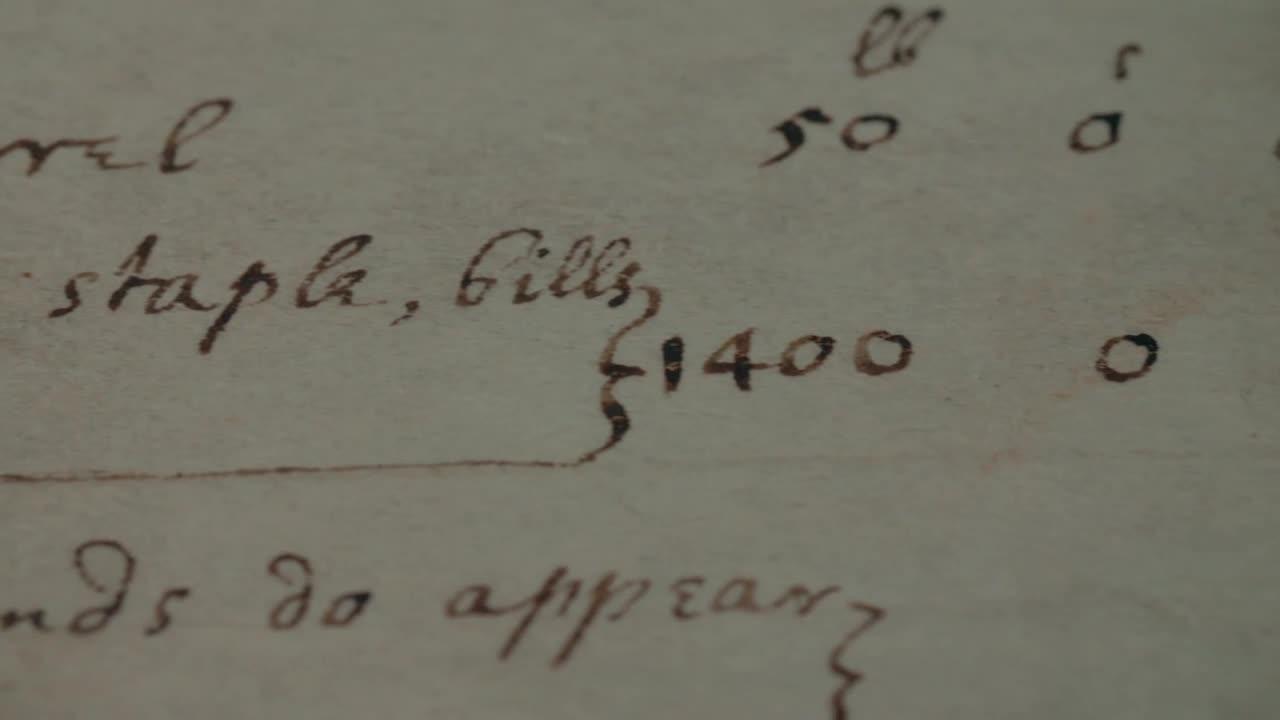 lb s
rel 50 0
staple, bills
1400 0
nds do appear